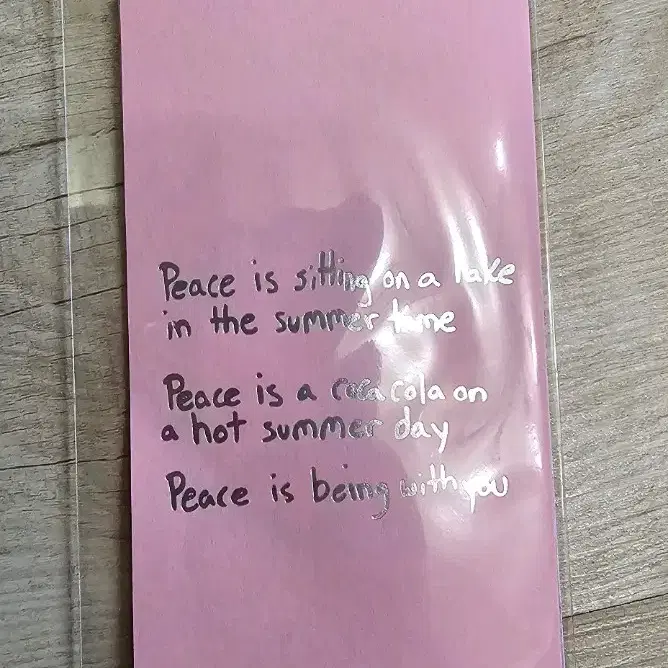 Peace is sitting on a lake
in the summer time
Peace is a coca cola on
a hot summer day
Peace is being with you